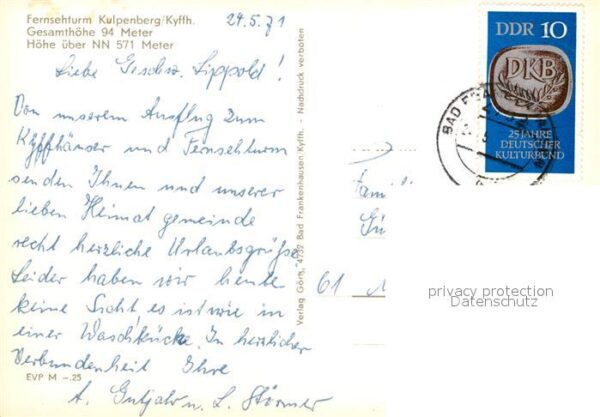 Fernsehturm Kulpenberg/Kyffh.
Gesamthöhe 94 Meter
Höhe über NN 571 Meter
24.5.71
Liebe Geschw. Lippold!
Von unserem Ausflug zum
Kyffhäuser und Fernsehturm
senden Ihnen und unserer
lieben Heimat gemeinde
recht herzliche Urlaubsgrüße.
Leider haben wir heute
keine Sicht, es ist wie in
einer Waschküche. In herzlicher
Verbundenheit Ihre
A. Gutjahr u. L. Störmer
EVP M –.25
Verlag Görtz, 4732 Bad Frankenhausen/Kyffh. - Nachdruck verboten
DDR 10
DKB
25 JAHRE
DEUTSCHER
KULTURBUND
BAD
Famili
61
privacy protection
Datenschutz